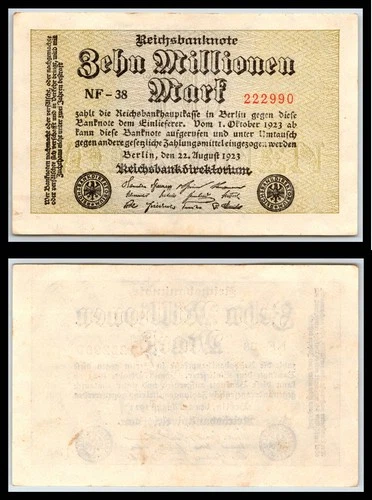 Reichsbanknote
Zehn Millionen
Mark
NF-38
222990
zahlt die Reichsbankhauptkasse in Berlin gegen diese
Banknote dem Einlieferer. Vom 1. Oktober 1923 ab
kann diese Banknote aufgerufen und unter Umtausch
gegen andere gesetzliche Zahlungsmittel eingezogen werden
Berlin, den 22. August 1923
Reichsbankdirektorium
Wer Banknoten nachmacht oder verfälscht, oder nachgemachte
oder verfälschte sich verschafft und in Verkehr bringt, wird mit
Zuchthaus nicht unter zwei Jahren bestraft